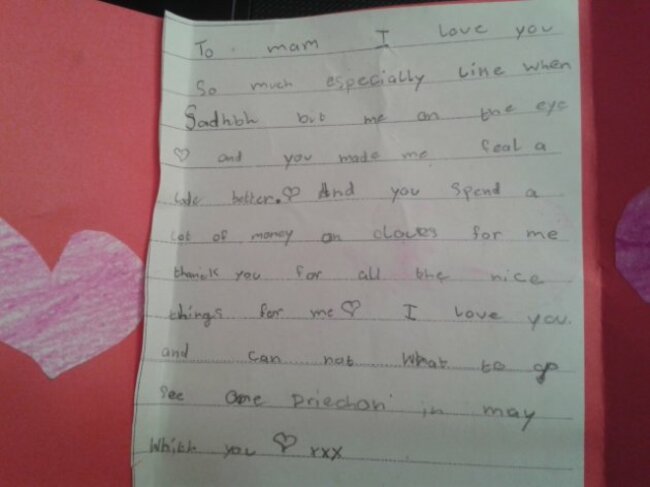 To mam I love you
So much especially Line when
Sadhbh bit me on the eye
♡ and you made me feal a
better.♡ And you spend a
lot of money on cloves for me
thanck you for all the nice
things for me ♡ I love you.
and can not what to go
see One Driechon in may
Whith you ♡ xxx